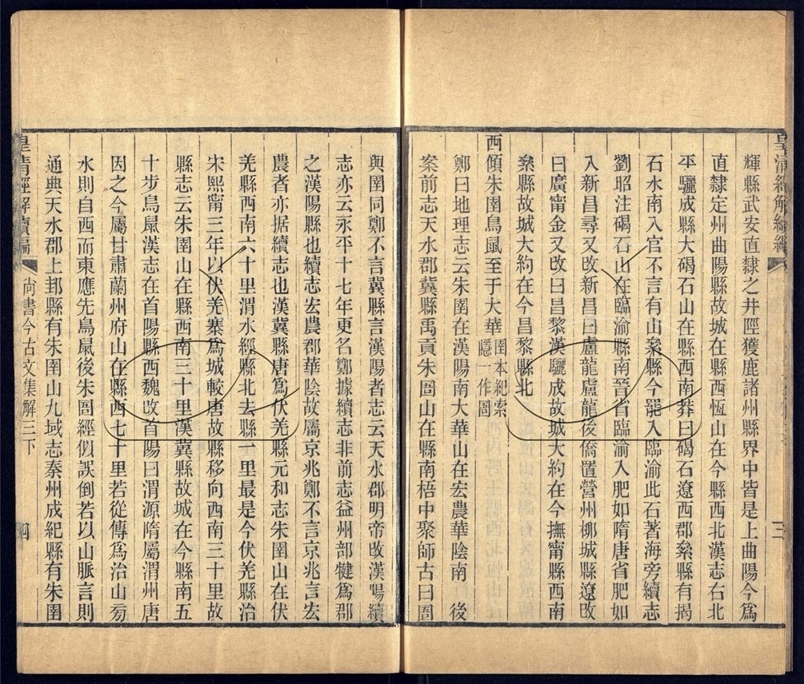 皇清經解續編
輝縣武安直隸之井陘獲鹿諸州縣界中皆是上曲陽今爲
直隸定州曲陽縣故城在縣西恆山在今縣西北漢志右北
平驪成縣大碣石山在縣西南莽曰碣石遼西郡絫縣有揭
石水南入官不言有山絫縣今罷入臨渝此石著海旁續志
劉昭注碣石山在臨渝縣南晉省臨渝入肥如隋唐省肥如
入新昌尋又改新昌曰盧龍盧龍後僑置營州柳城縣遼改
曰廣甯金又改曰昌黎漢驪成故城大約在今撫甯縣西南
絫縣故城大約在今昌黎縣北
西傾朱圉鳥鼠至于大華
圉本紀索
隱一作圄
鄭曰地理志云朱圉在漢陽南大華山在宏農華陰南 後
案前志天水郡冀縣禹貢朱圄山在縣南梧中聚師古曰圄
與圉同鄭不言冀縣言漢陽者志云天水郡明帝改漢陽續
志亦云永平十七年更名鄭據續志非前志益州部犍爲郡
之漢陽縣也續志宏農郡華陰故屬京兆鄭不言京兆言宏
農者亦据續志也漢冀縣唐爲伏羌縣元和志朱圉山在伏
羌縣西南六十里渭水經縣北去縣一里最是今伏羌縣治
宋熙甯三年以伏羌寨爲城較唐故縣移向西南三十里故
縣志云朱圉山在縣西南三十里漢冀縣故城在今縣南五
十步鳥鼠漢志在首陽縣西魏改首陽曰渭源隋屬渭州唐
因之今屬甘肅蘭州府山在縣西七十里若從傳爲治山旁
水則自西而東應先鳥鼠後朱圄經似誤倒若以山脈言則
通典天水郡上邽縣有朱圉山九域志秦州成紀縣有朱圉
皇清經解續編
尚書今古文集解三下